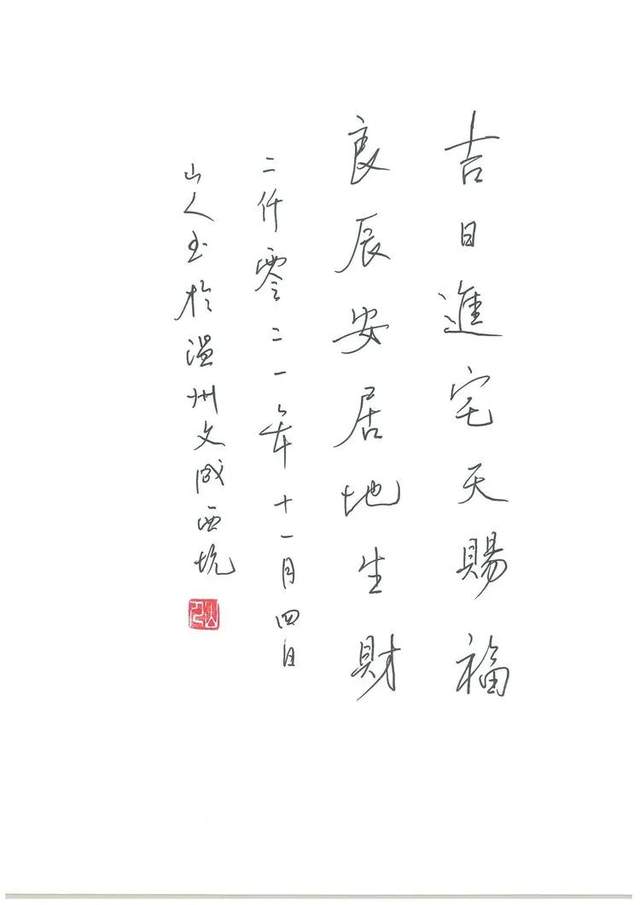 吉日進宅天賜福
良辰安居地生財
二仟零二一年十一月四日
山人书於温州文成西坑
山人